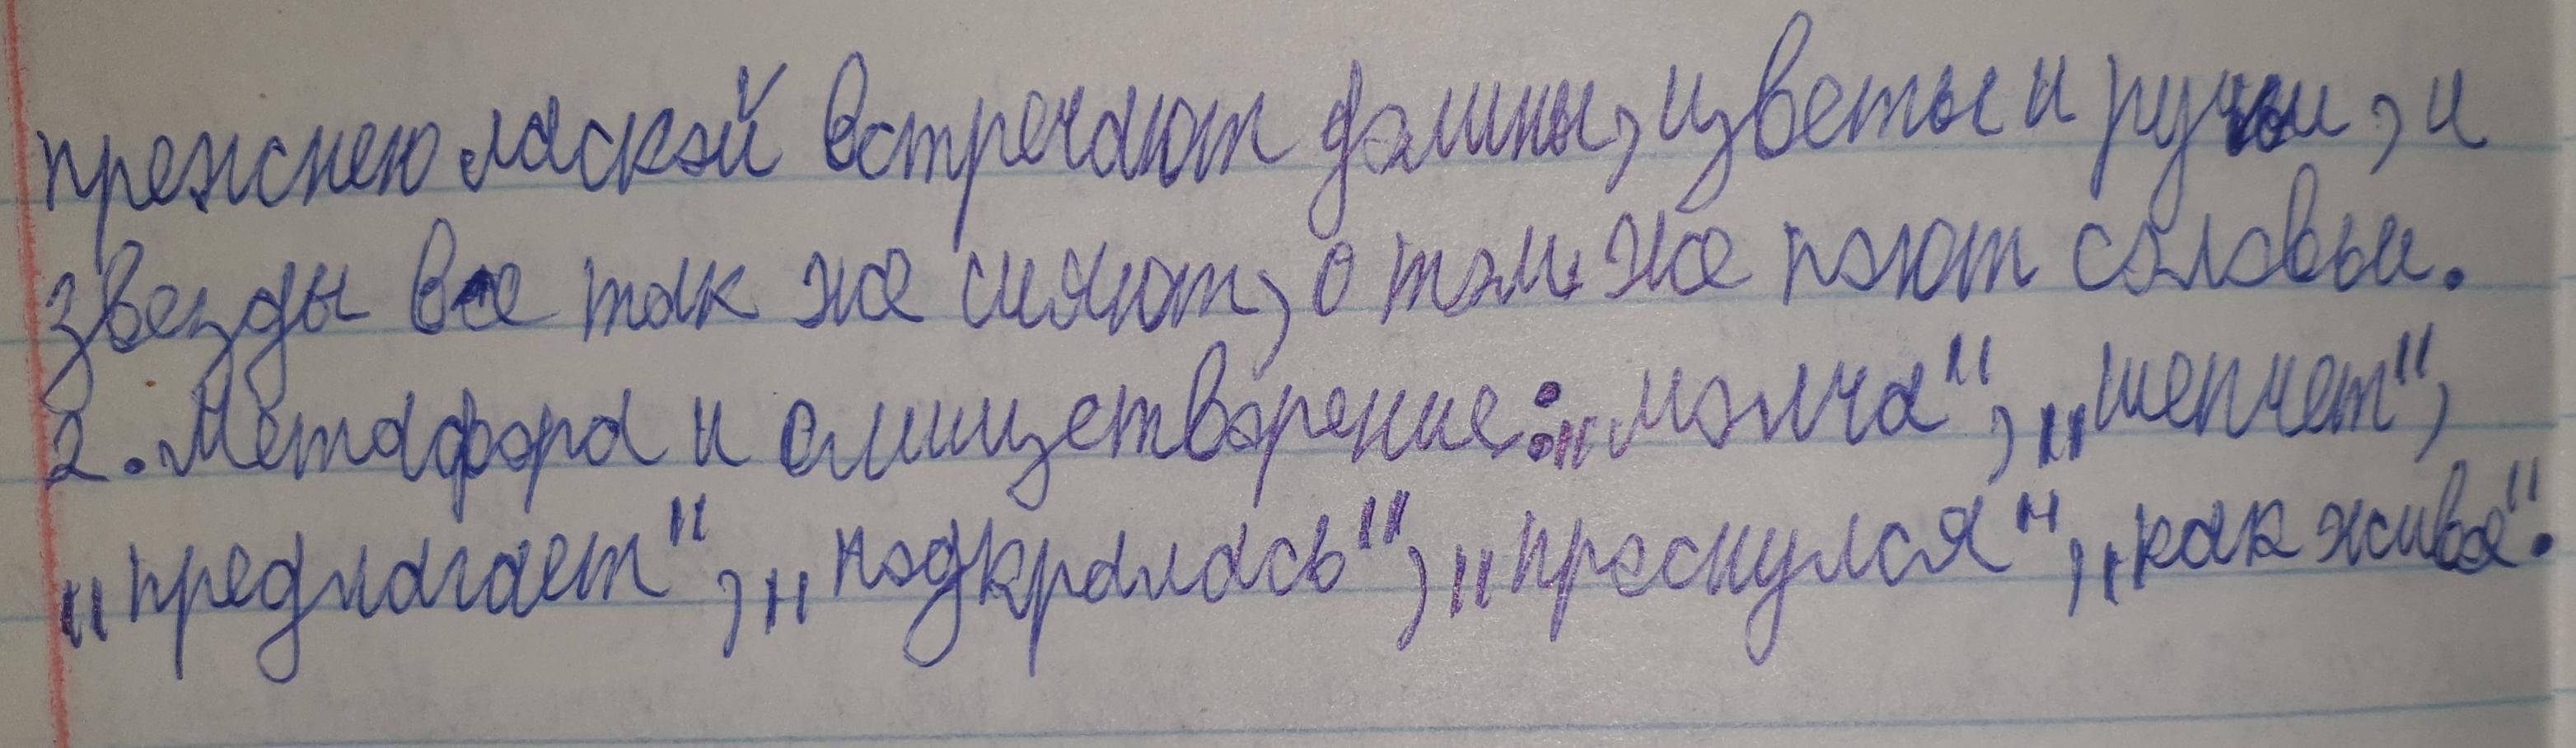 прежнею лаской встречают долины, цветы и ручьи, и
звезды все так же сияют, о том же поют соловьи.
2. Метафора и олицетворение: „молча", „шепчет",
„предлагает", „подкралась", „проснулся", „как живая".